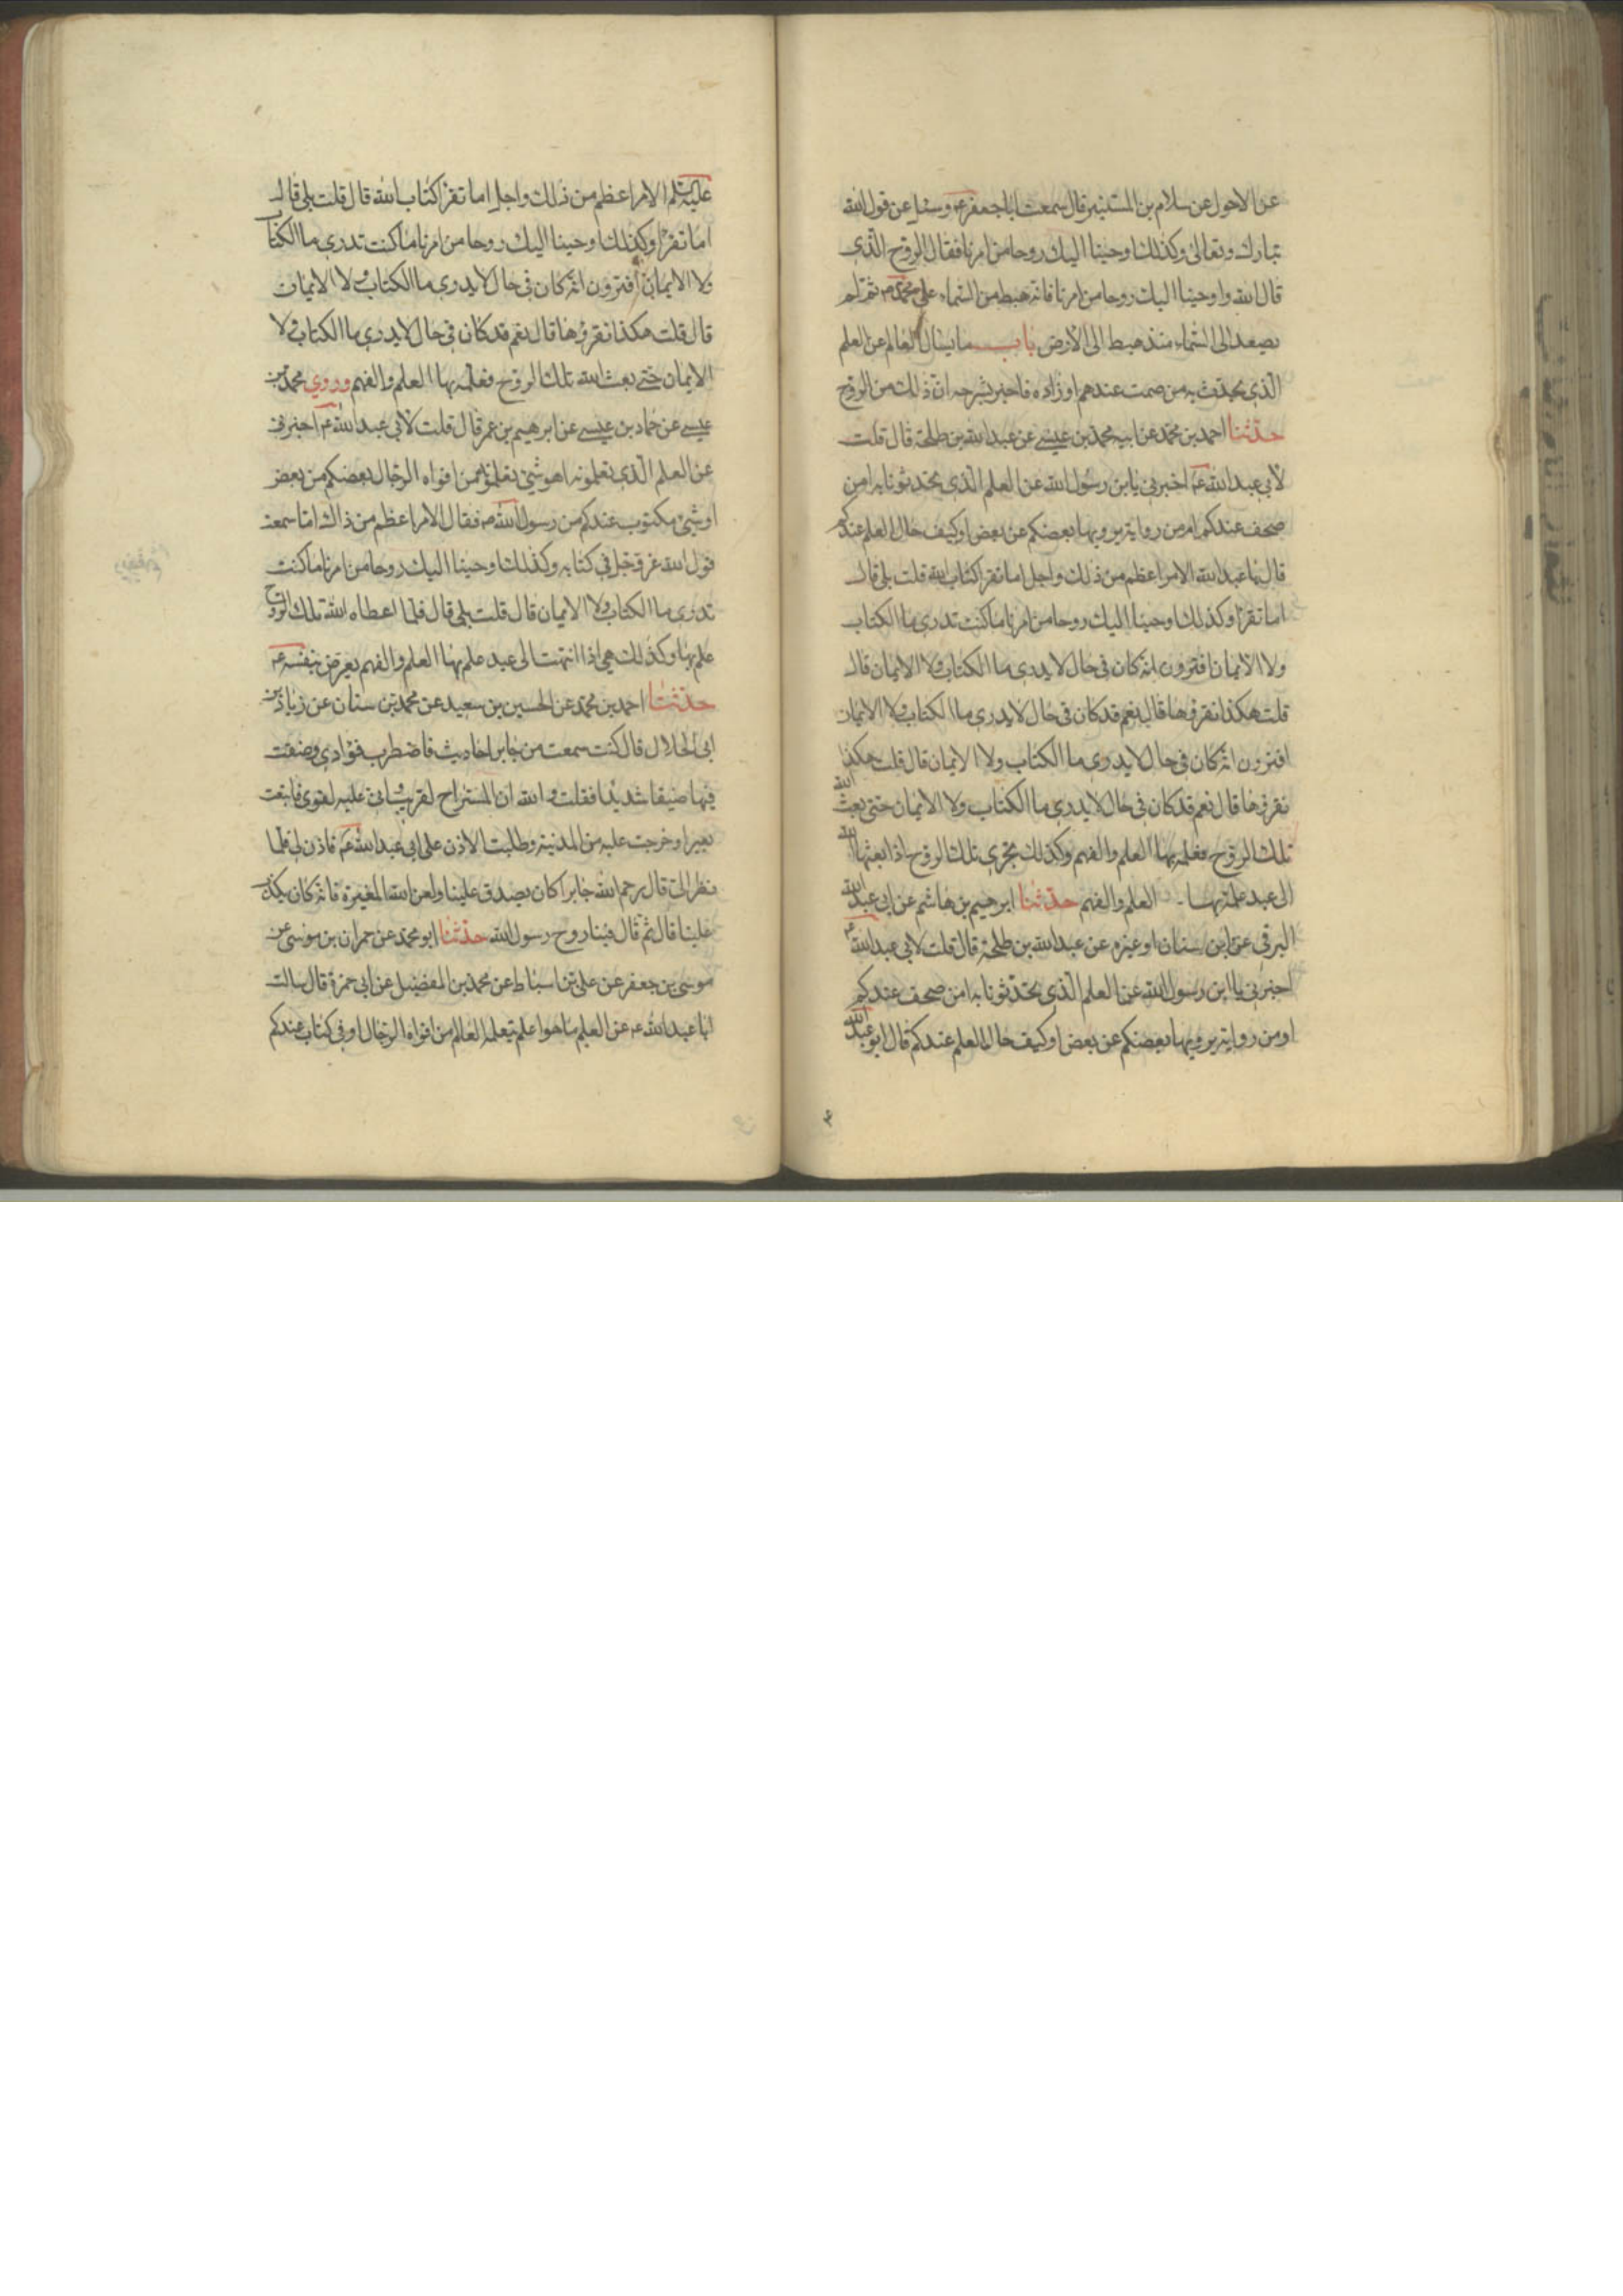 عن الاحول عن سلام بن المستنير قال سمعت اباجعفر ع‍ وسئل عن قول الله
تبارك وتعالى وكذلك اوحينا اليك روحا من امرنا فقال الروح الذى
قال الله واوحينا اليك روحا من امرنا فانه هبط من السماء على محمد ص ثم لم
يصعد الى السماء منذ هبط الى الارض باب ما يسال العالم عن العلم
الذى يحدث به من صحف عندهم او زاده فاخبر بشرحه ان ذلك من الروح
حدثنا احمد بن محمد عن ابيه محمد بن عيسى عن عبدالله بن طلحة قال قلت
لابى عبدالله ع‍ اخبرنى يابن رسول الله عن العلم الذى تحدثونا به امن
صحف عندكم ام من رواية يرويها بعضكم عن بعض او كيف حال العلم عندكم
قال يا عبدالله الامر اعظم من ذلك واجل اما تقرا كتاب الله قلت بلى قال
اما تقرا وكذلك اوحينا اليك روحا من امرنا ما كنت تدرى ما الكتاب
ولا الايمان افترون انه كان فى حال لا يدرى ما الكتاب ولا الايمان قال
قلت هكذا نقرؤها قال نعم قد كان فى حال لا يدرى ما الكتاب ولا الايمان
افترون انه كان فى حال لا يدرى ما الكتاب ولا الايمان قال قلت هكذا
نقرؤها قال نعم قد كان فى حال لا يدرى ما الكتاب ولا الايمان حتى بعث الله
تلك الروح فعلمه بها العلم والفهم وكذلك تجرى تلك الروح اذا بعثها الله
الى عبد علمه بها العلم والفهم حدثنا ابرهيم بن هاشم عن ابى عبدالله
البرقى عن ابن سنان او غيره عن عبدالله بن طلحة قال قلت لابى عبدالله ع‍
اخبرنى يا ابن رسول الله عن العلم الذى تحدثونا به امن صحف عندكم
او من رواية يرويها بعضكم عن بعض او كيف حال العلم عندكم قال ابو عبدالله
عليه السلم الامر اعظم من ذلك واجل اما تقرا كتاب الله قال قلت بلى قال
اما تقرا وكذلك اوحينا اليك روحا من امرنا ما كنت تدرى ما الكتاب
ولا الايمان افترون انه كان فى حال لا يدرى ما الكتاب ولا الايمان
قال قلت هكذا نقرؤها قال نعم قد كان فى حال لا يدرى ما الكتاب ولا
الايمان حتى بعث الله تلك الروح فعلمه بها العلم والفهم وروي محمد بن
عيسى عن حماد بن عيسى عن ابرهيم بن عمر قال قلت لابى عبدالله ع‍ اخبرنى
عن العلم الذى تعلمونه اهو شئ تعلمونه من افواه الرجال بعضكم من بعض
او شئ مكتوب عندكم من رسول الله ص فقال الامر اعظم من ذاك اما سمعت
قول الله عز وجل فى كتابه وكذلك اوحينا اليك روحا من امرنا ما كنت
تدرى ما الكتاب ولا الايمان قال قلت بلى قال فلما اعطاه الله تلك الروح
علم بها وكذلك هى اذا انتهت الى عبد علم بها العلم والفهم يعرض بنفسه ع‍
حدثنا احمد بن محمد عن الحسين بن سعيد عن محمد بن سنان عن زياد بن
ابى الحلال قال كنت سمعت من جابر احاديث فاضطرب فؤادى وضقت
فيها ضيقا شديدا فقلت والله ان المستراح لقريب وانى عليه لقوى فابتعت
بعيرا وخرجت عليه من المدينة وطلبت الاذن على ابى عبدالله ع‍ فاذن لى فلما
نظر الى قال رحم الله جابرا كان يصدق علينا ولعن الله المغيرة فانه كان يكذب
علينا قال ثم قال فينا روح رسول الله حدثنا ابو محمد عن حمران بن موسى عن
موسى بن جعفر عن على بن اسباط عن محمد بن الفضيل عن ابى حمزة قال سالت
ابا عبدالله ع‍ عن العلم ما هوا علم يتعلمه العالم من افواه الرجال او فى كتاب عندكم